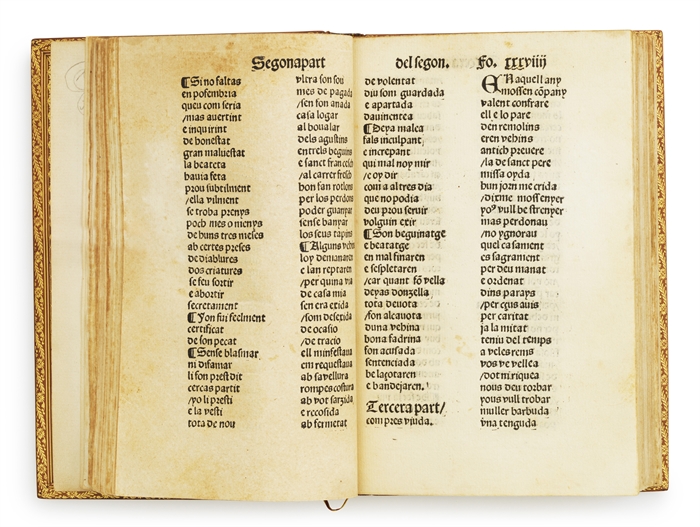 Segonapart
¶Si no faltas
en pofembria
queu com seria
/mas auertint
e inquirint
de bonestat
gran maluestat
la beateta
bauia feta
prou subtilment
/ella vilment
se troba prenys
poch mes o menys
de buns tres meses
ab certes preses
de diablures
dos criatures
se feu sortir
e abortir
secretament
¶Yon fui feelment
certificat
de son pecat
¶Sense blasmar
ni disamar
li fon prest dit
cercas partit
/yo li presti
e la vesti
tota de nou
vltra son sou
mes de pagada
/sen fon anada
casa logar
al boualar
dels agustins
entrels beguins
e sanct francesch
al carrer fresch
bon fan rotlons
per los perdons
poder guanyar
sense banyar
los seus tapins
loy demanaren
e lan reptaren
/per quina via
de casa mia
sen era exida
/som desexida
de ocasio
/de tracio
ell minfestaua
em requestaua
ab sa vellura
rompes costura
ab vot sarzida
e recosida
ab fermetat
del segon. Fo. xxxviiij
de volentat
diu som guardada
e apartada
dauinentea
¶Deya malea
fals inculpant
e increpant
qui mal noy mir
/e oy dir
com a altres dia
que no podia
deu prou seruir
volguin exir
¶Son beguinatge
e beatatge
en mal finaren
e sespletaren
/car quant fõ vella
deyas donzella
tota deuota
/fon alcauota
duna vehina
bona fadrina
fon acusada
sentenciada
be laçotaren
e bandejaren.
Tercera part/
com pres viuda.
EN aquell any
mossen cõpany
valent confrare
ell e lo pare
den remolins
eren vehins
antich preuere
/la de sanct pere
missa oyda
bun jorn me crida
/dixme mossenyer
yoꝰ vull be strenyer
mas perdonau
/no ygnorau
quel casament
es sagrament
per deu manat
e ordenat
dins parays
/per cçus auis
per caritat
ja la mitat
teniu del temps
a veles rems
vos ve vellea
/dot ni riquea
nous deu torbar
yous vull trobar
muller barbuda
vna tenguda